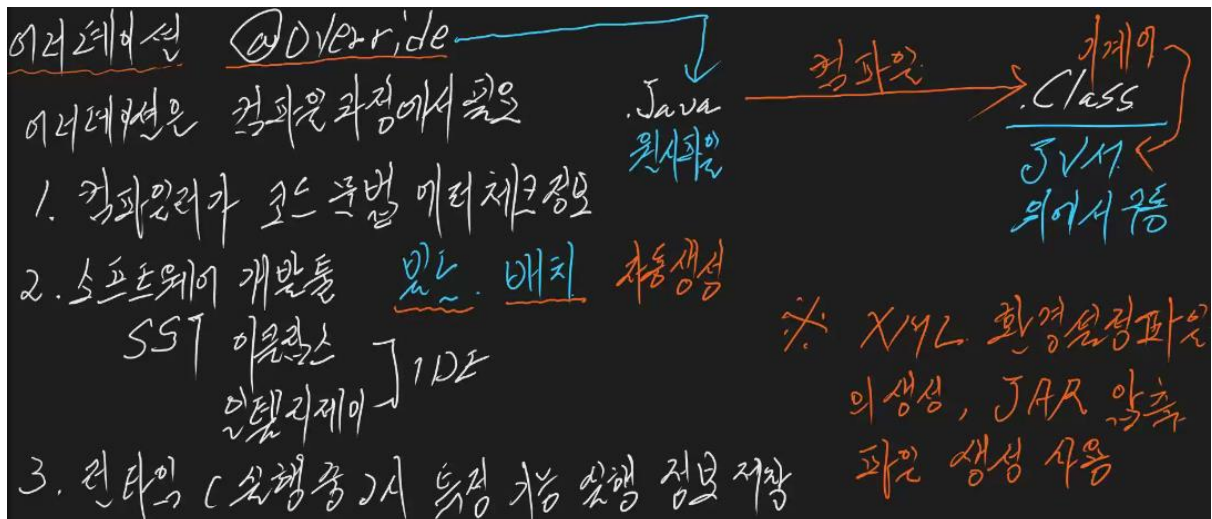 어너테이션 @Override
어너테이션은 컴파일 과정에서 필요
1. 컴파일러가 코드 문법 에러 체크 정보
2. 소프트웨어 개발툴 빌드. 배치 자동생성
SST 이클립스
인텔리제이 ] IDE
3. 런타임 (실행중)시 특정 기능 실행 정보 제작
.Java
원시파일
컴파일
기계어
.Class
JVM
위에서 구동
※ XML 환경설정파일
의 생성, JAR 압축
파일 생성 사용